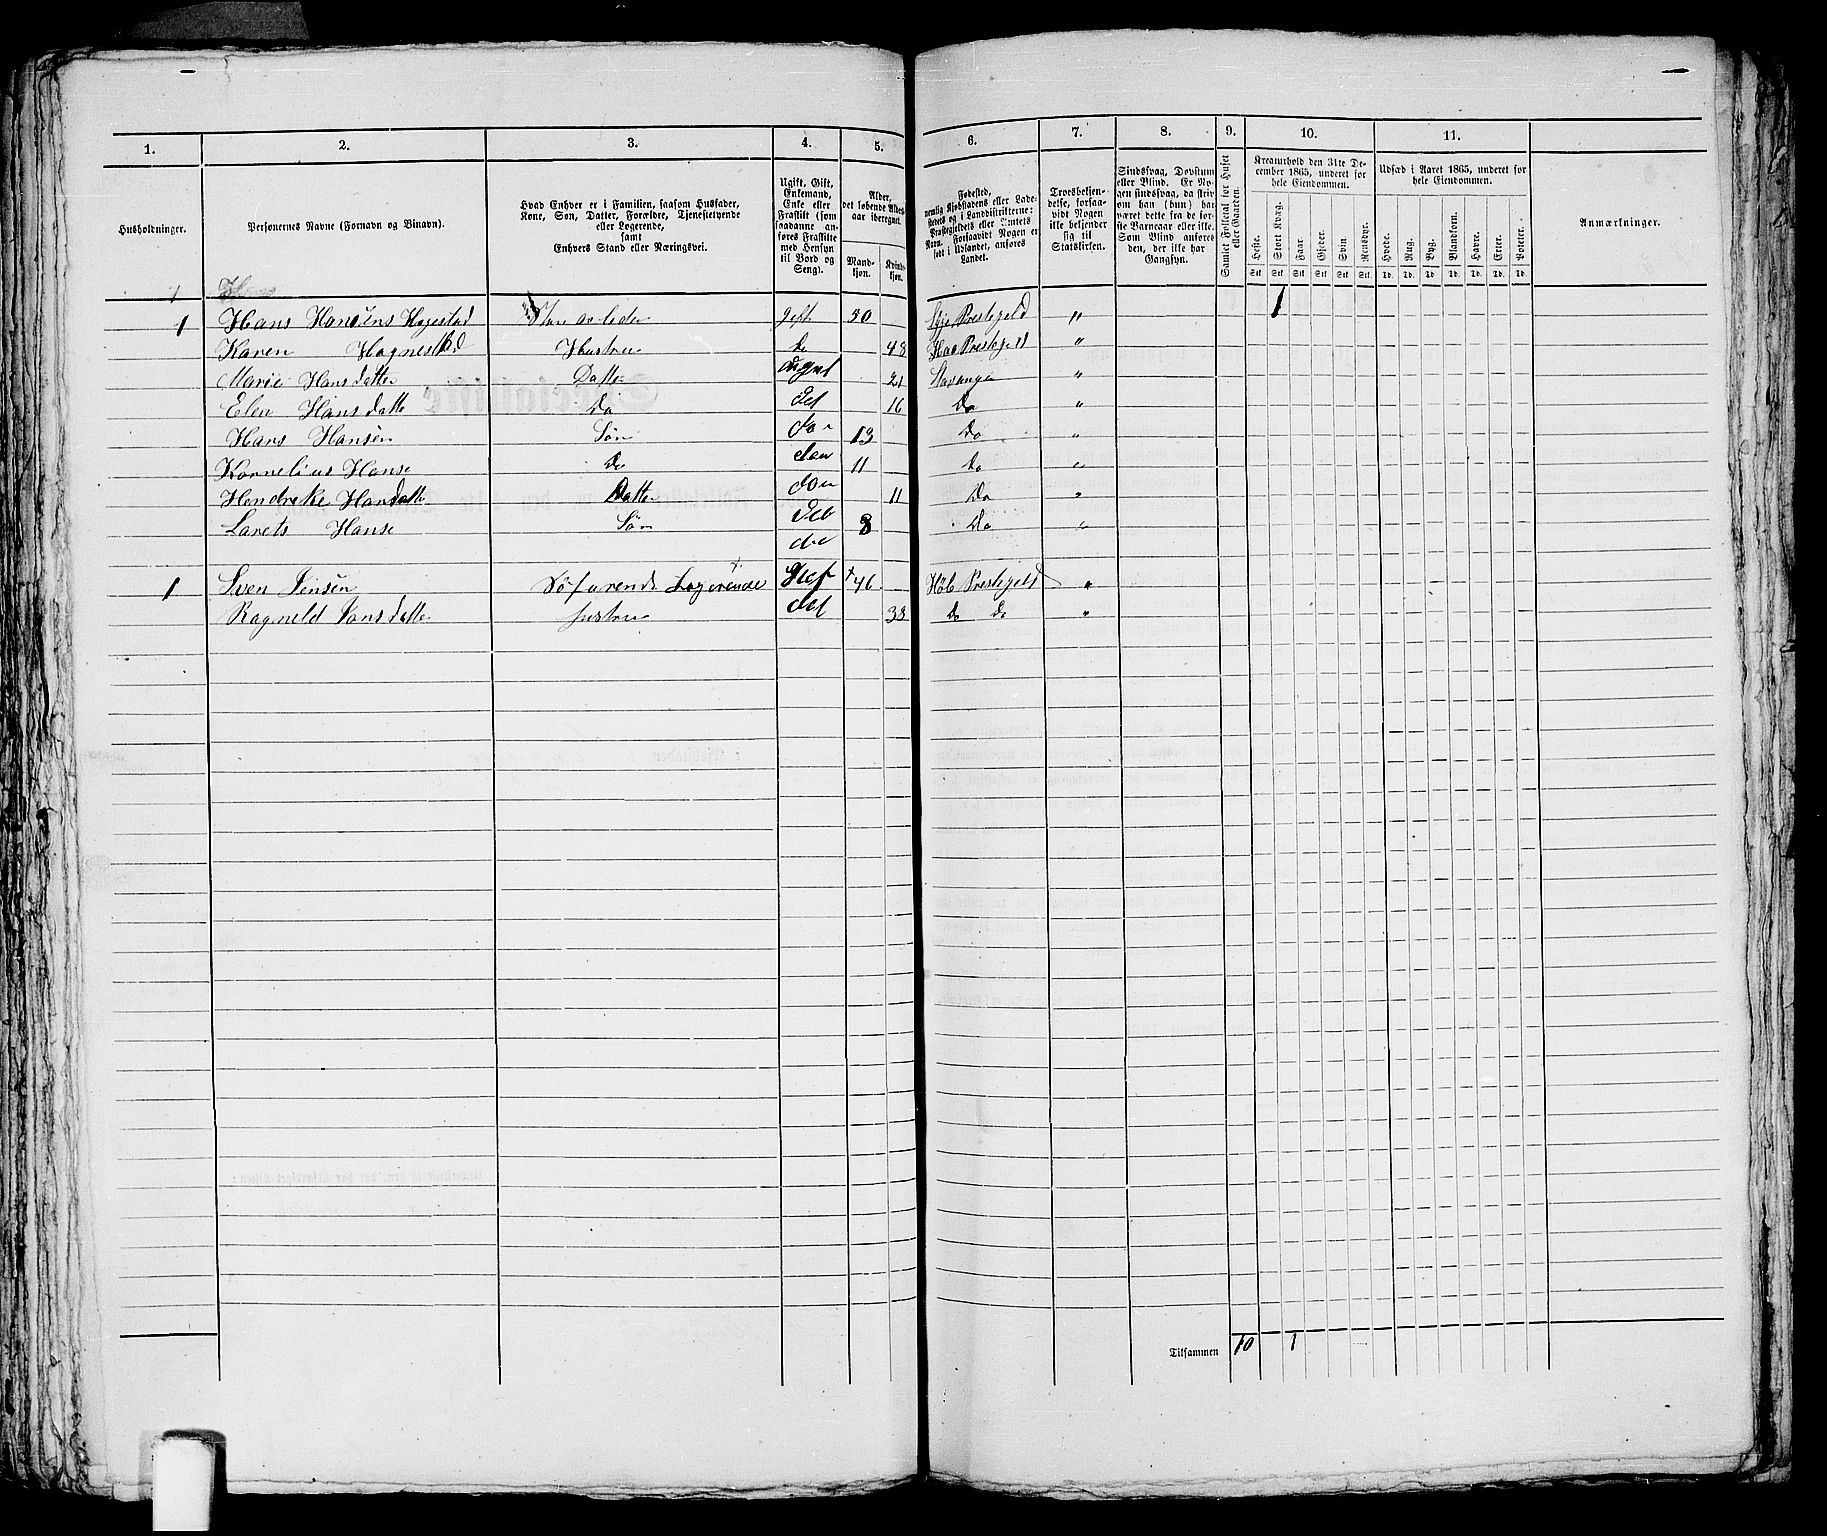 1. 2. 3. 4. 5. 6. 7. 8. 9. 10. 11.
Husholdninger.
Personernes Navne (Fornavn og Binavn).
Hvad Enhver er i Familien, saasom Husfader,
Kone, Søn, Datter, Forældre, Tjenestetyende
eller Logerende,
samt
Enhvers Stand eller Næringsvei.
Ugift, Gift,
Enkemand,
Enke eller
Fraskilt (som
saadanne an-
føres Fraskilte
med Hensyn
til Bord og
Seng).
Alder,
det løbende Alders-
aar iberegnet.
Mand-
kjøn.
Kvind-
kjøn.
Fødested,
nemlig Kjøbstadens eller Lade-
stedets og i Landdistrikterne:
Præstegjeldets eller Amtets
Navn. Forsaavidt Nogen er
født i Udlandet, anføres
Landet.
Troesbekjen-
delse, forsaa-
vidt Nogen
ikke bekjender
sig til
Statskirken.
Sindssvag, Døvstum
eller Blind. Er No-
gen sindssvag, da skriv
om han (hun) har
været dette fra de før-
ste Barneaar eller ikke.
Som Blind anføres
den, der ikke har
Gangsyn.
Samlet Folketal for Huset
eller Gaarden.
Kreaturhold den 31te De-
cember 1865, underet for
hele Eiendommen.
Heste. Stort Kvæg. Faar. Gjeder. Svin. Rensdyr.
Stk. Stk. Stk. Stk. Stk. Stk.
Udsæd i Aaret 1865, underet for
hele Eiendommen.
Hvede. Rug. Byg. Blandkorn. Havre. Erter. Poteter.
Td. Td. Td. Td. Td. Td. Td.
Anmærkninger.
1 Hans Hansens gift 50 Prestegeld " 1
Karen Hustru Do 48 Prestegeld "
Marie Hansdatter Datter ugift 21 Stavanger "
Elen Hansdatte Do 16 Do "
Hans Hansen Søn 13 Do "
Kornelius Hanse Do 11 Do "
Hendreke Hansdatte Datter 11 Do "
Larets Hanse Søn 8 Do "
1 Sven Jensen Søfarende Logerende 46 Prestegeld "
Ragneld Jansdatte hustru 38 Do Do "
Tilsammen 10 1